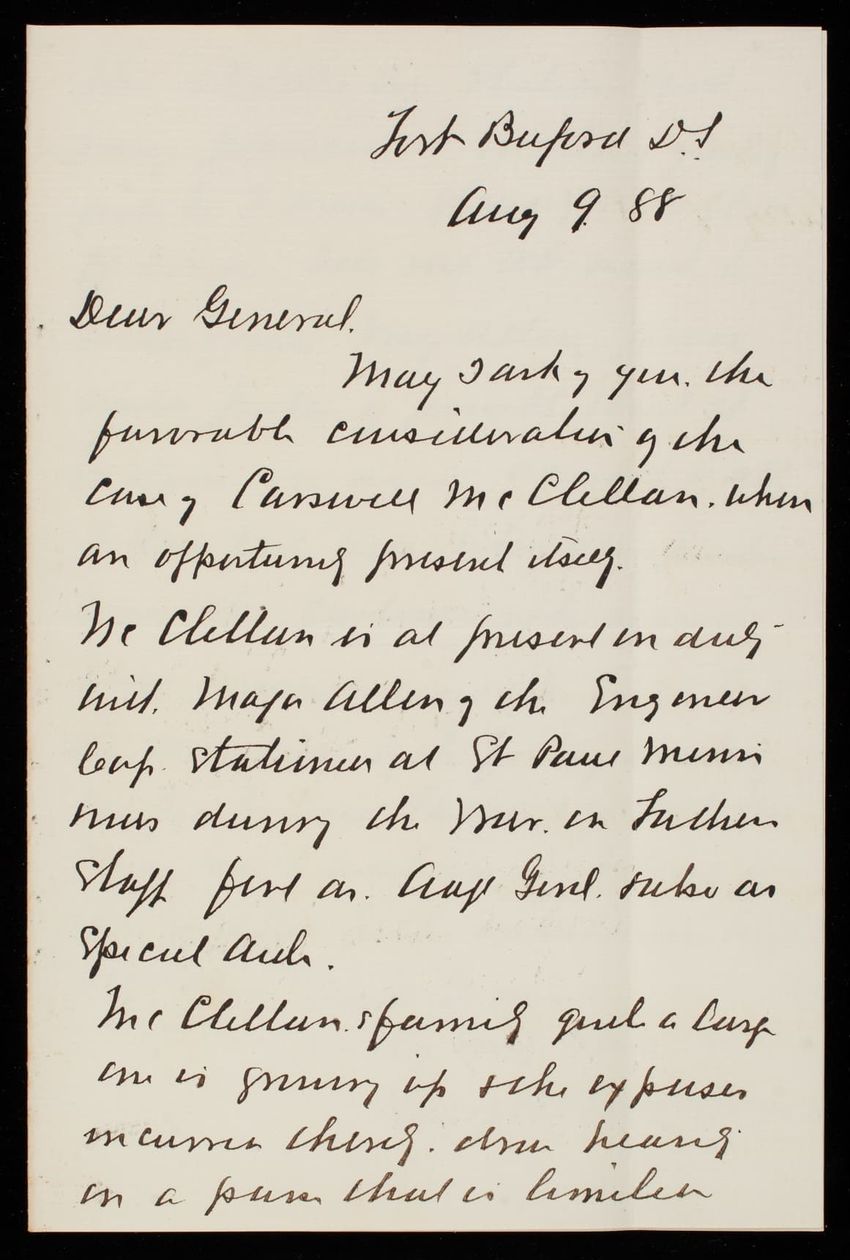 Fort Buford D.T
Aug 9. 88
Dear General.
May I ask of you. the
favorable consideration of the
case of Carswell McClellan. when
an opportunity present itself.
McClellan is at present on duty
with. Major Allen of the Engineer
Corp. stationed at St Paul Minn
was during the War. on Fathers
Staff first as. Genl. & also as
Special Aide.
McClellan.s family quite a large
one is growing up & the expenses
incurred thereby. draw heavily
on a purse that is limited